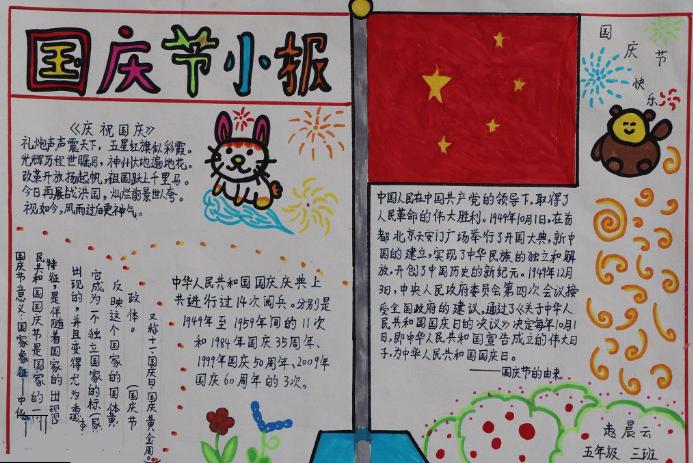 国庆节小报
《庆祝国庆》
礼炮声声震天下，五星红旗似彩霞。
光辉历程世瞩目，神州大地遍地花。
改革开放扬起帆，祖国跃上千里马。
今日再展战洪国，灿烂前景世人夸。
视如今，风雨过后更神气。
国庆节意义：国家象征——中华
民共和国国庆节是国家的一
特征，是伴随着国家的出现
出现的，并且变得尤为重
它成为一个独立国家的标
反映这个国家的国体
政体。
（国庆节
又称十一、国庆日、国庆黄金周。
中华人民共和国国庆庆典上
共进行过14次阅兵。分别是
1949年至1959年间的11次
和1984年国庆35周年、
1999年国庆50周年、2009年
国庆60周年的3次。
中国人民在中国共产党的领导下，取得了
人民革命的伟大胜利。1949年10月1日，在首
都北京天安门广场举行了开国大典，新中
国的建立，实现了中华民族的独立和解
放，开创了中国历史的新纪元。1949年12月
3日，中央人民政府委员会第四次会议接
受全国政府的建议，通过了《关于中华人
民共和国国庆日的决议》决定每年10月1
日，即中华人民共和国宣告成立的伟大日
子，为中华人民共和国国庆日。
——国庆节的由来
国庆节
快乐
赵晨云
五年级 三班